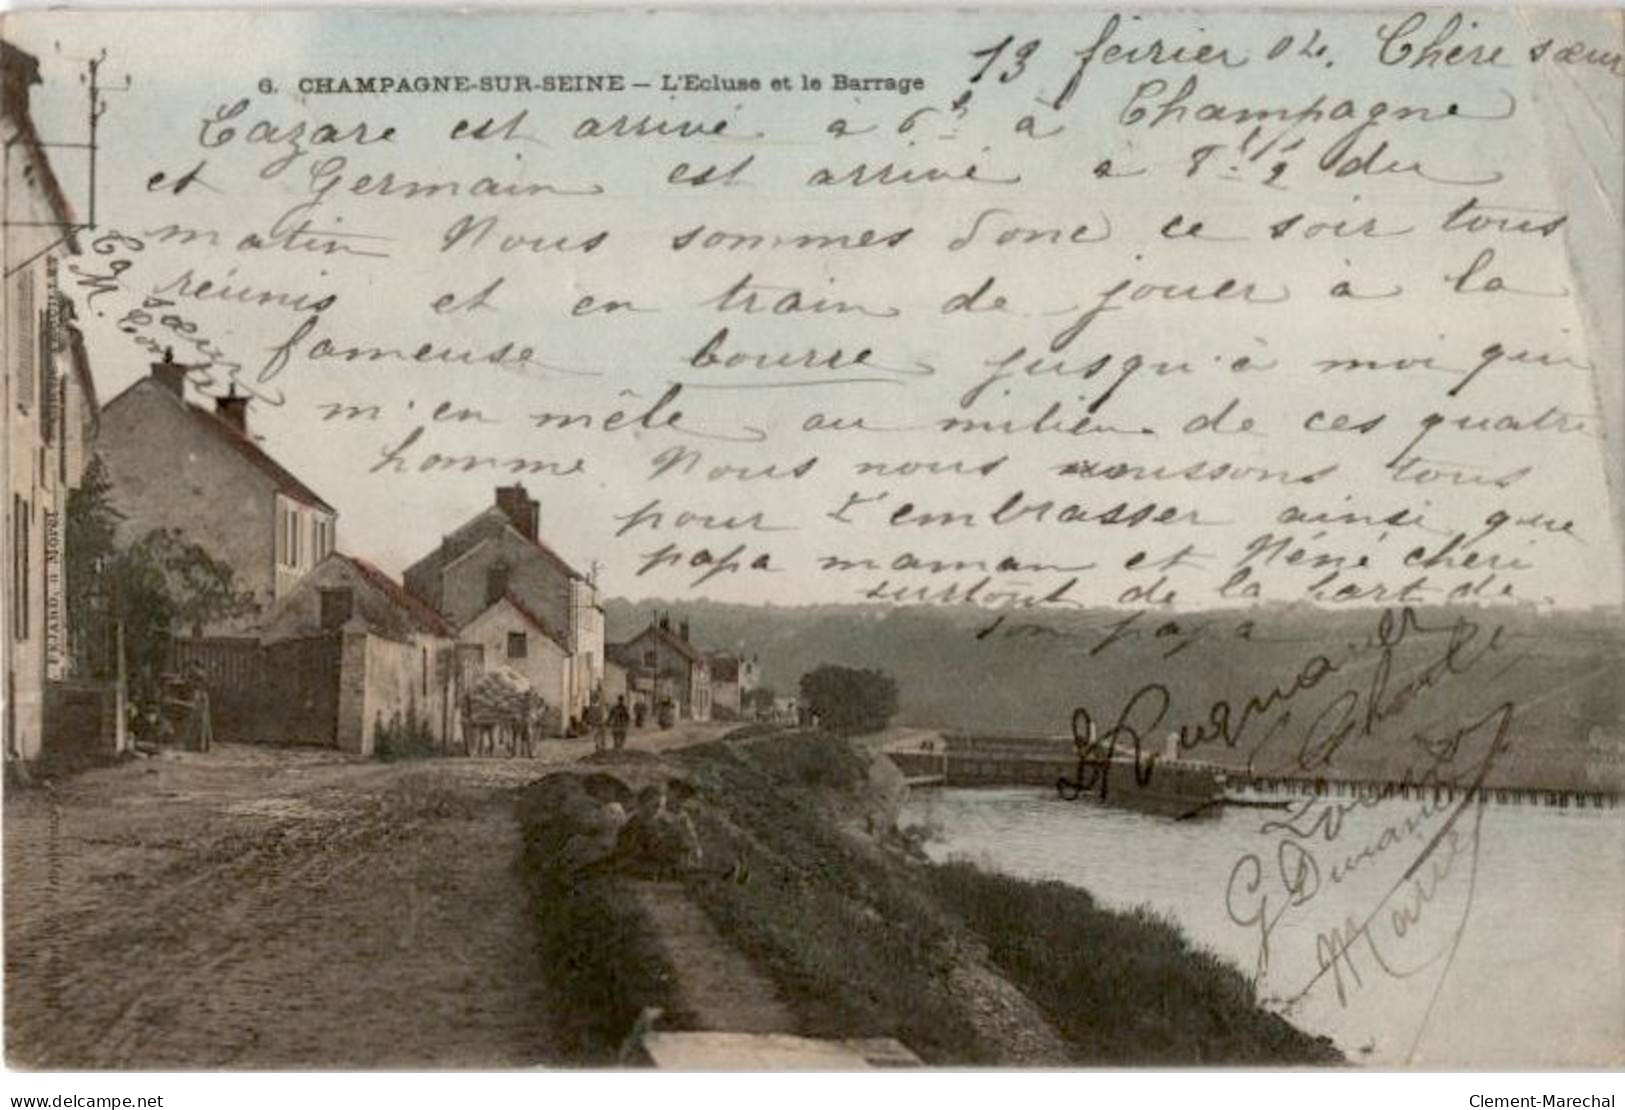 6. CHAMPAGNE-SUR-SEINE – L'Ecluse et le Barrage
13 février 02. Chère sœur
Lazare est arrivé à 6 h à Champagne
et Germain est arrivé à 8 h 1/2 du
matin Nous sommes donc ce soir tous
réunis et en train de jouer à la
fameuse bourre jusqu'à moi qui
m'en mêle au milieu de ces quatre
homme. Nous nous unissons tous
pour t'embrasser ainsi que
papa maman et Néné chéri
surtout de la part de
son papa
Ta sœur
M.
G Durand
Marie
www.delcampe.net
Clement-Marechal